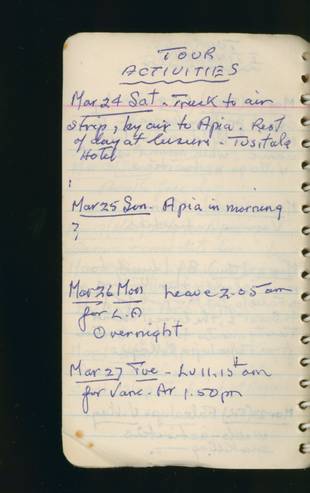 TOUR
ACTIVITIES
Mar 24 Sat. Truck to air
strip, by air to Apia. Rest
of day at leisure - Tusitala
Hotel
Mar 25 Sun. Apia in morning
?
Mar 26 Mon Leave 2.05 am
for L.A
Overnight
Mar 27 Tue - Lv 11.15 am
for Vanc. Ar 1.50 pm